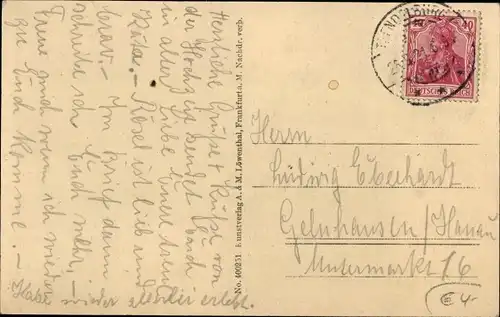 Herzliche Grüße + Küsse von
der Hochzeit sendet Euch
in alter Liebe Eure treue
Käte. – Rösel ist lieb und
brav. – Im Brief dann
schreibe ich Euch mehr,
Freue mich wenn ich wieder
zu Euch komme. –
Habe wieder allerlei erlebt.
No. 400251. Kunstverlag A. & M. Löwenthal, Frankfurt a. M. Nachdr. verb.
40
DEUTSCHES REICH
Herrn
Ludwig Eberhardt
Gelnhausen / Hanau
Untermarkt 16
€ 4.-